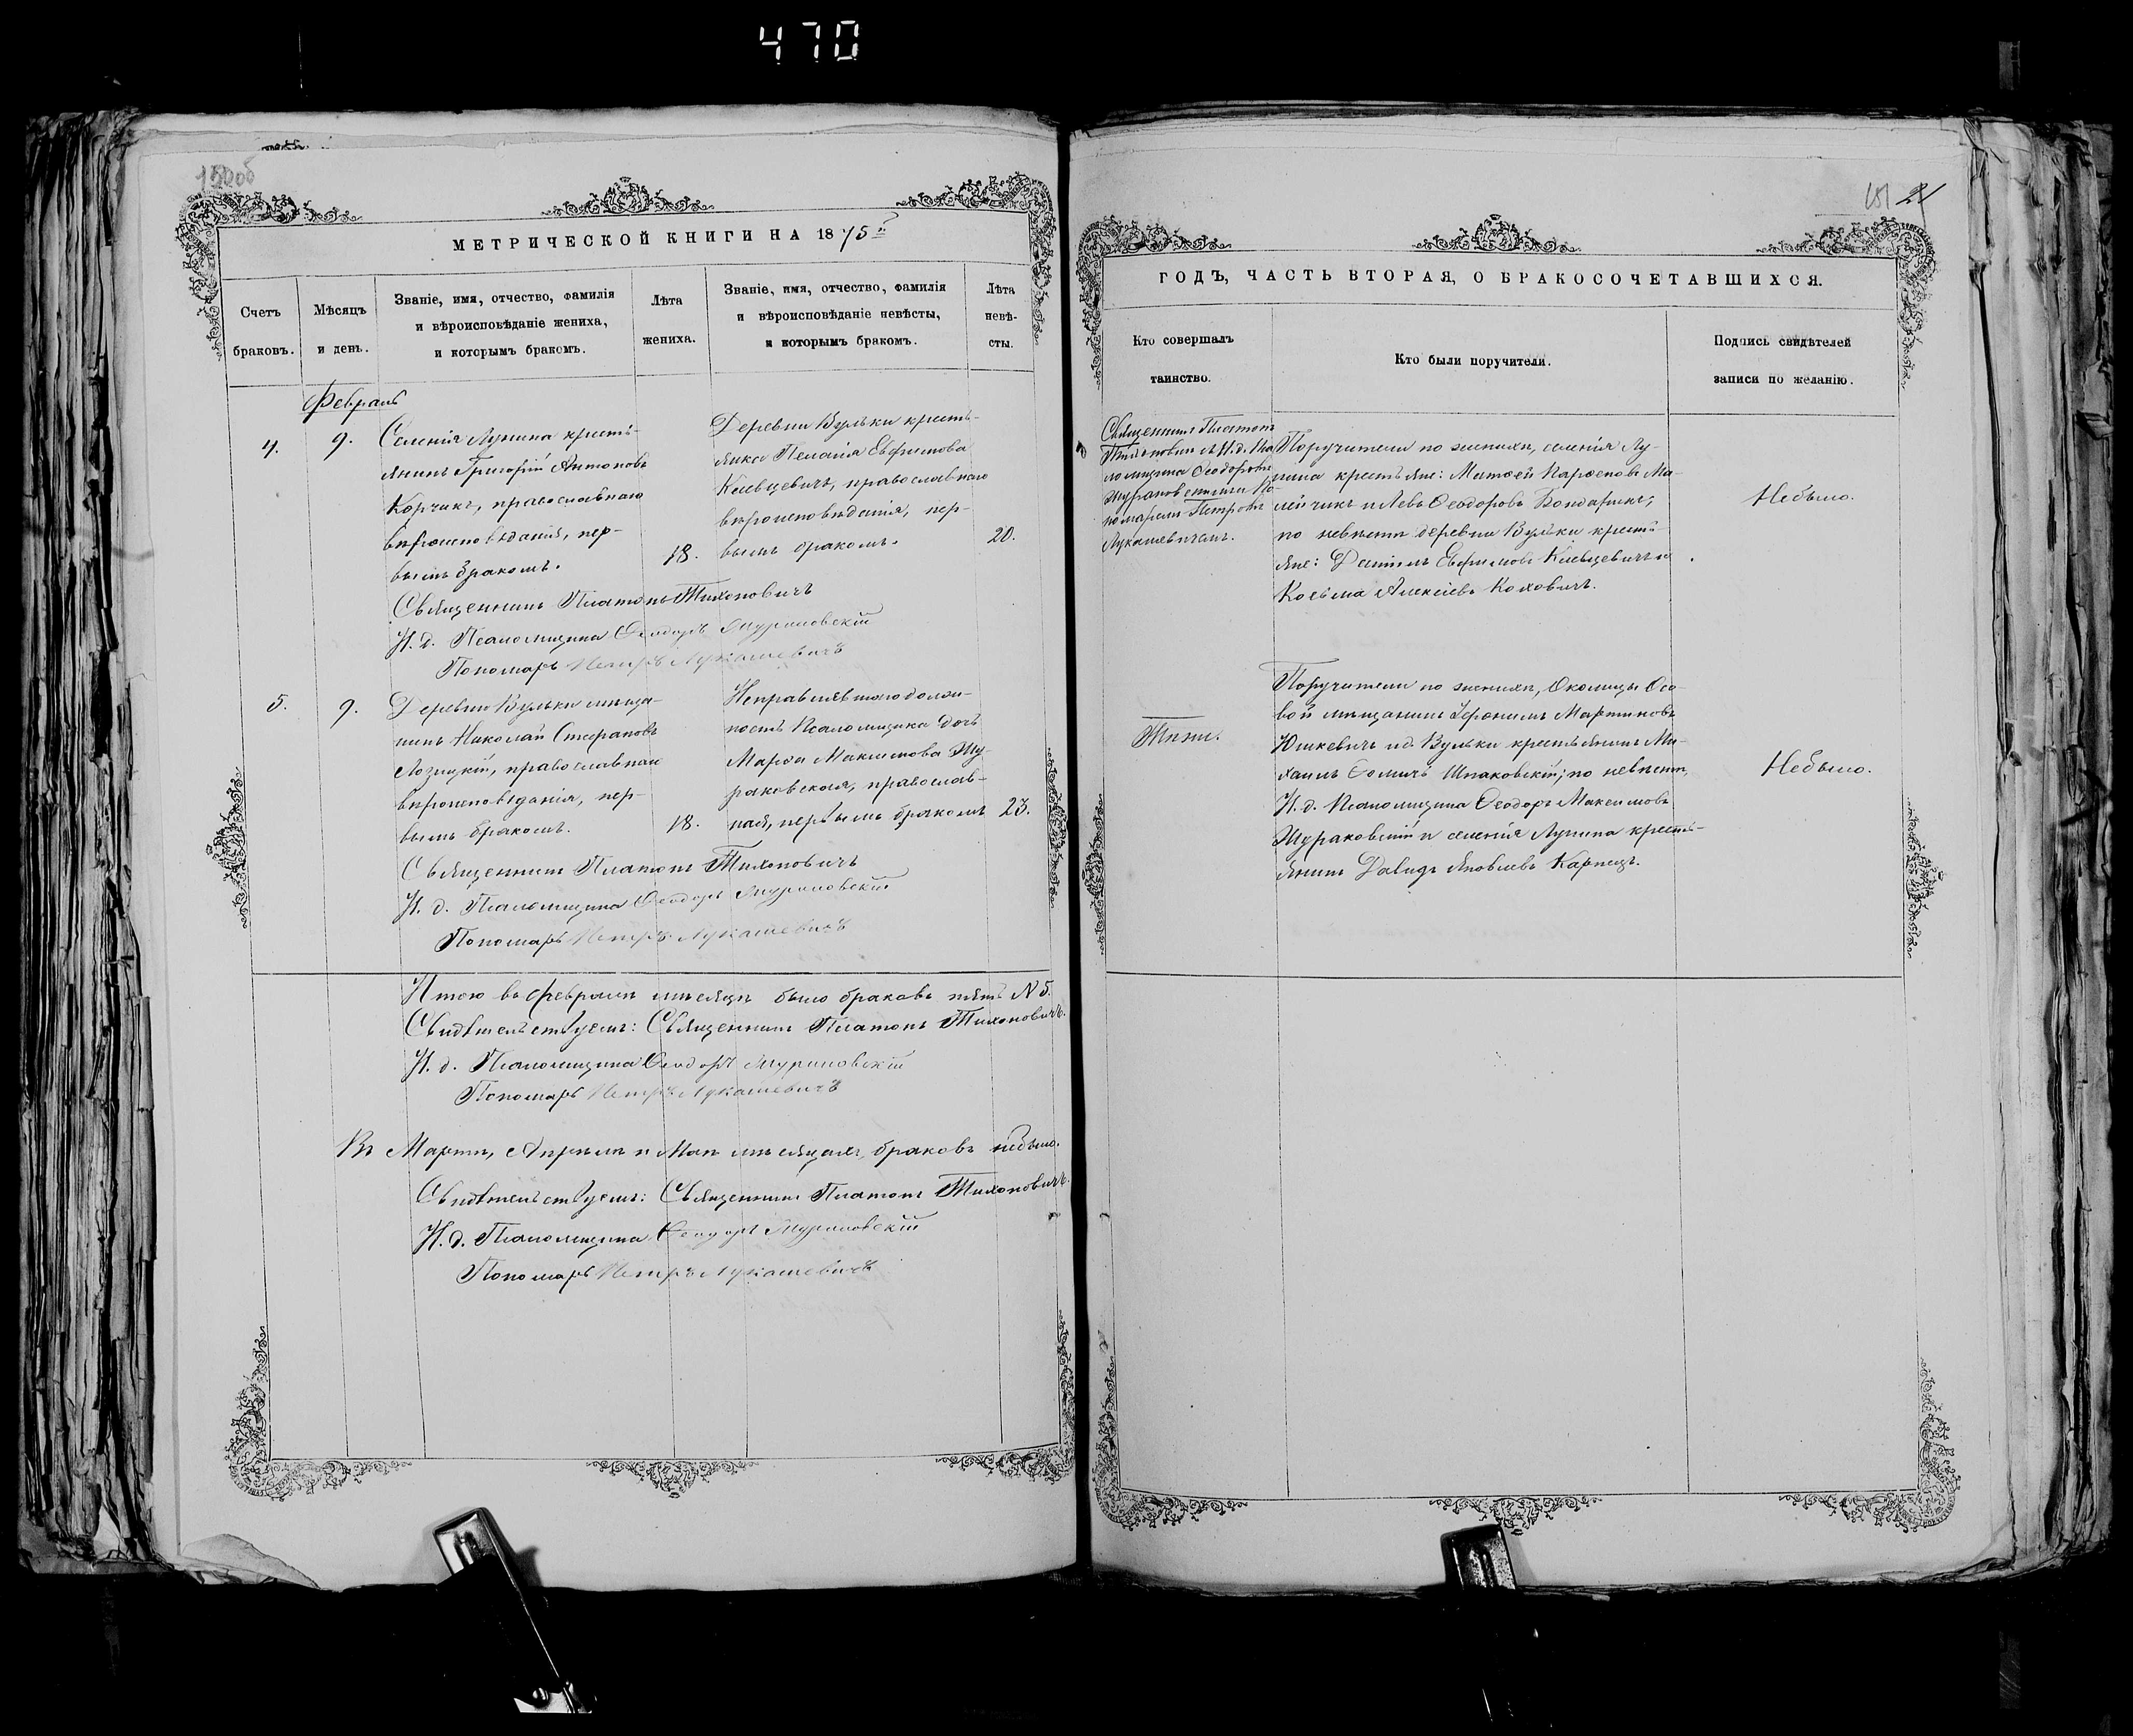 470
150об
МЕТРИЧЕСКОЙ КНИГИ НА 1875й
Счетъ
браковъ.
Мѣсяцъ
и день.
Званіе, имя, отчество, фамилія
и вѣроисповѣданіе жениха,
и которымъ бракомъ.
Лѣта
жениха.
Званіе, имя, отчество, фамилія
и вѣроисповѣданіе невѣсты,
и которымъ бракомъ.
Лѣта
невѣ-
сты.
Февраль
4.
9.
Селенія Лунина кресть-
янинъ Григорій Антоновъ
Корчикъ, православнаго
вѣроисповѣданія, пер-
вымъ бракомъ.
18.
Деревни Вульки кресть-
янка Пелагія Евфимова
Киевцевичъ, православнаго
вѣроисповѣданія, пер-
вымъ бракомъ.
20.
Священникъ Платонъ Тихоновичъ
И. д. Псаломщика Ѳеодоръ Жураковскій
Пономарь Петръ Лукашевичъ
5.
9.
Деревни Вульки мѣща-
нинъ Николай Стефановъ
Лозицкій, православнаго
вѣроисповѣданія, пер-
вымъ бракомъ.
18.
Исправлявшаго долж-
ность Псаломщика дочь
Марѳа Максимова Жу-
раковская, православ-
ная, первымъ бракомъ
23.
Священникъ Платонъ Тихоновичъ
И. д. Псаломщика Ѳеодоръ Жураковскій
Пономарь Петръ Лукашевичъ
Итого въ Февралѣ мѣсяцѣ было браковъ пять N 5.
Свидѣтельствуемъ: Священникъ Платонъ Тихоновичъ.
И. д. Псаломщика Ѳеодоръ Жураковскій
Пономарь Петръ Лукашевичъ
Въ Мартѣ, Апрѣлѣ и Маѣ мѣсяцахъ, браковъ небыло.
Свидѣтельствуемъ: Священникъ Платонъ Тихоновичъ.
И. д. Псаломщика Ѳеодоръ Жураковскій
Пономарь Петръ Лукашевичъ
151 21
ГОДЪ, ЧАСТЬ ВТОРАЯ, О БРАКОСОЧЕТАВШИХСЯ.
Кто совершалъ
таинство.
Кто были поручители.
Подпись свидѣтелей
записи по желанію.
Священникъ Платонъ
Тихоновичъ съ И. д. Пса
ломщика Ѳеодоромъ
Жураковскимъ и По-
номаремъ Петромъ
Лукашевичемъ.
Поручители по женихѣ, селенія Лу-
нина крестьяне: Матѳей Парѳеновъ Ма-
лейчикъ и Левъ Ѳеодоровъ Бондарикъ;
по невѣстѣ деревни Вульки кресть-
яне: Даніилъ Евфимовъ Киевцевичъ и
Козьма Алексѣевъ Коховичъ.
Небыло.
Тѣже.
Поручители по женихѣ, Околицы Осо-
вой мѣщанинъ Іеронимъ Мартиновъ
Юшкевичъ и д. Вульки крестьянинъ Ми-
хаилъ Ѳомичъ Шпаковскій; по невѣстѣ,
И. д. Псаломщика Ѳеодоръ Максимовъ
Жураковскій и селенія Лунина кресть-
янинъ Давидъ Яковлевъ Карпецъ.
Небыло.